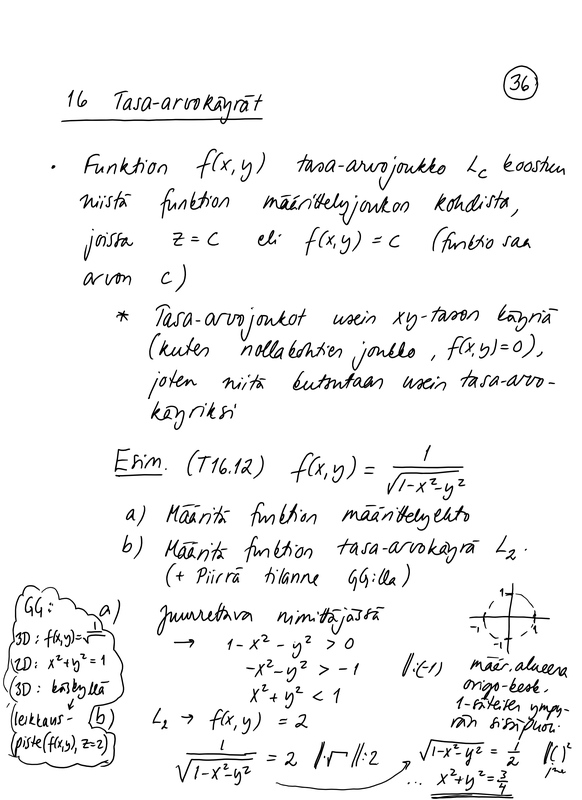 36
16 Tasa-arvokäyrät
• Funktion f(x,y) tasa-arvojoukko L_c koostuu
niistä funktion määrittelyjoukon kohdista,
joissa z = c eli f(x,y) = c (funktio saa
arvon c)
* Tasa-arvojoukot usein xy-tason käyriä
(kuten nollakohtien joukko, f(x,y)=0),
joten niitä kutsutaan usein tasa-arvo-
käyriksi
Esim. (T16.12) f(x,y) = 1/√(1-x²-y²)
a) Määritä funktion määrittelyehto
b) Määritä funktion tasa-arvokäyrä L₂.
(+ Piirrä tilanne GG:llä)
a) Juurrettava nimittäjässä
→ 1-x²-y² > 0
-x²-y² > -1 ‖:(-1)
x²+y² < 1
1
-1 1
-1
määr.alueena
origo-kesk.
1-säteisen ympy-
rän sisäpuoli
b) L₂ → f(x,y) = 2
1/√(1-x²-y²) = 2 ‖·√ ‖:2
√(1-x²-y²) = 1/2 ‖()²
... x²+y² = 3/4
GG:
3D: f(x,y)=1/√
2D: x²+y²=1
3D: käskyllä
leikkaus-
piste(f(x,y), z=2)